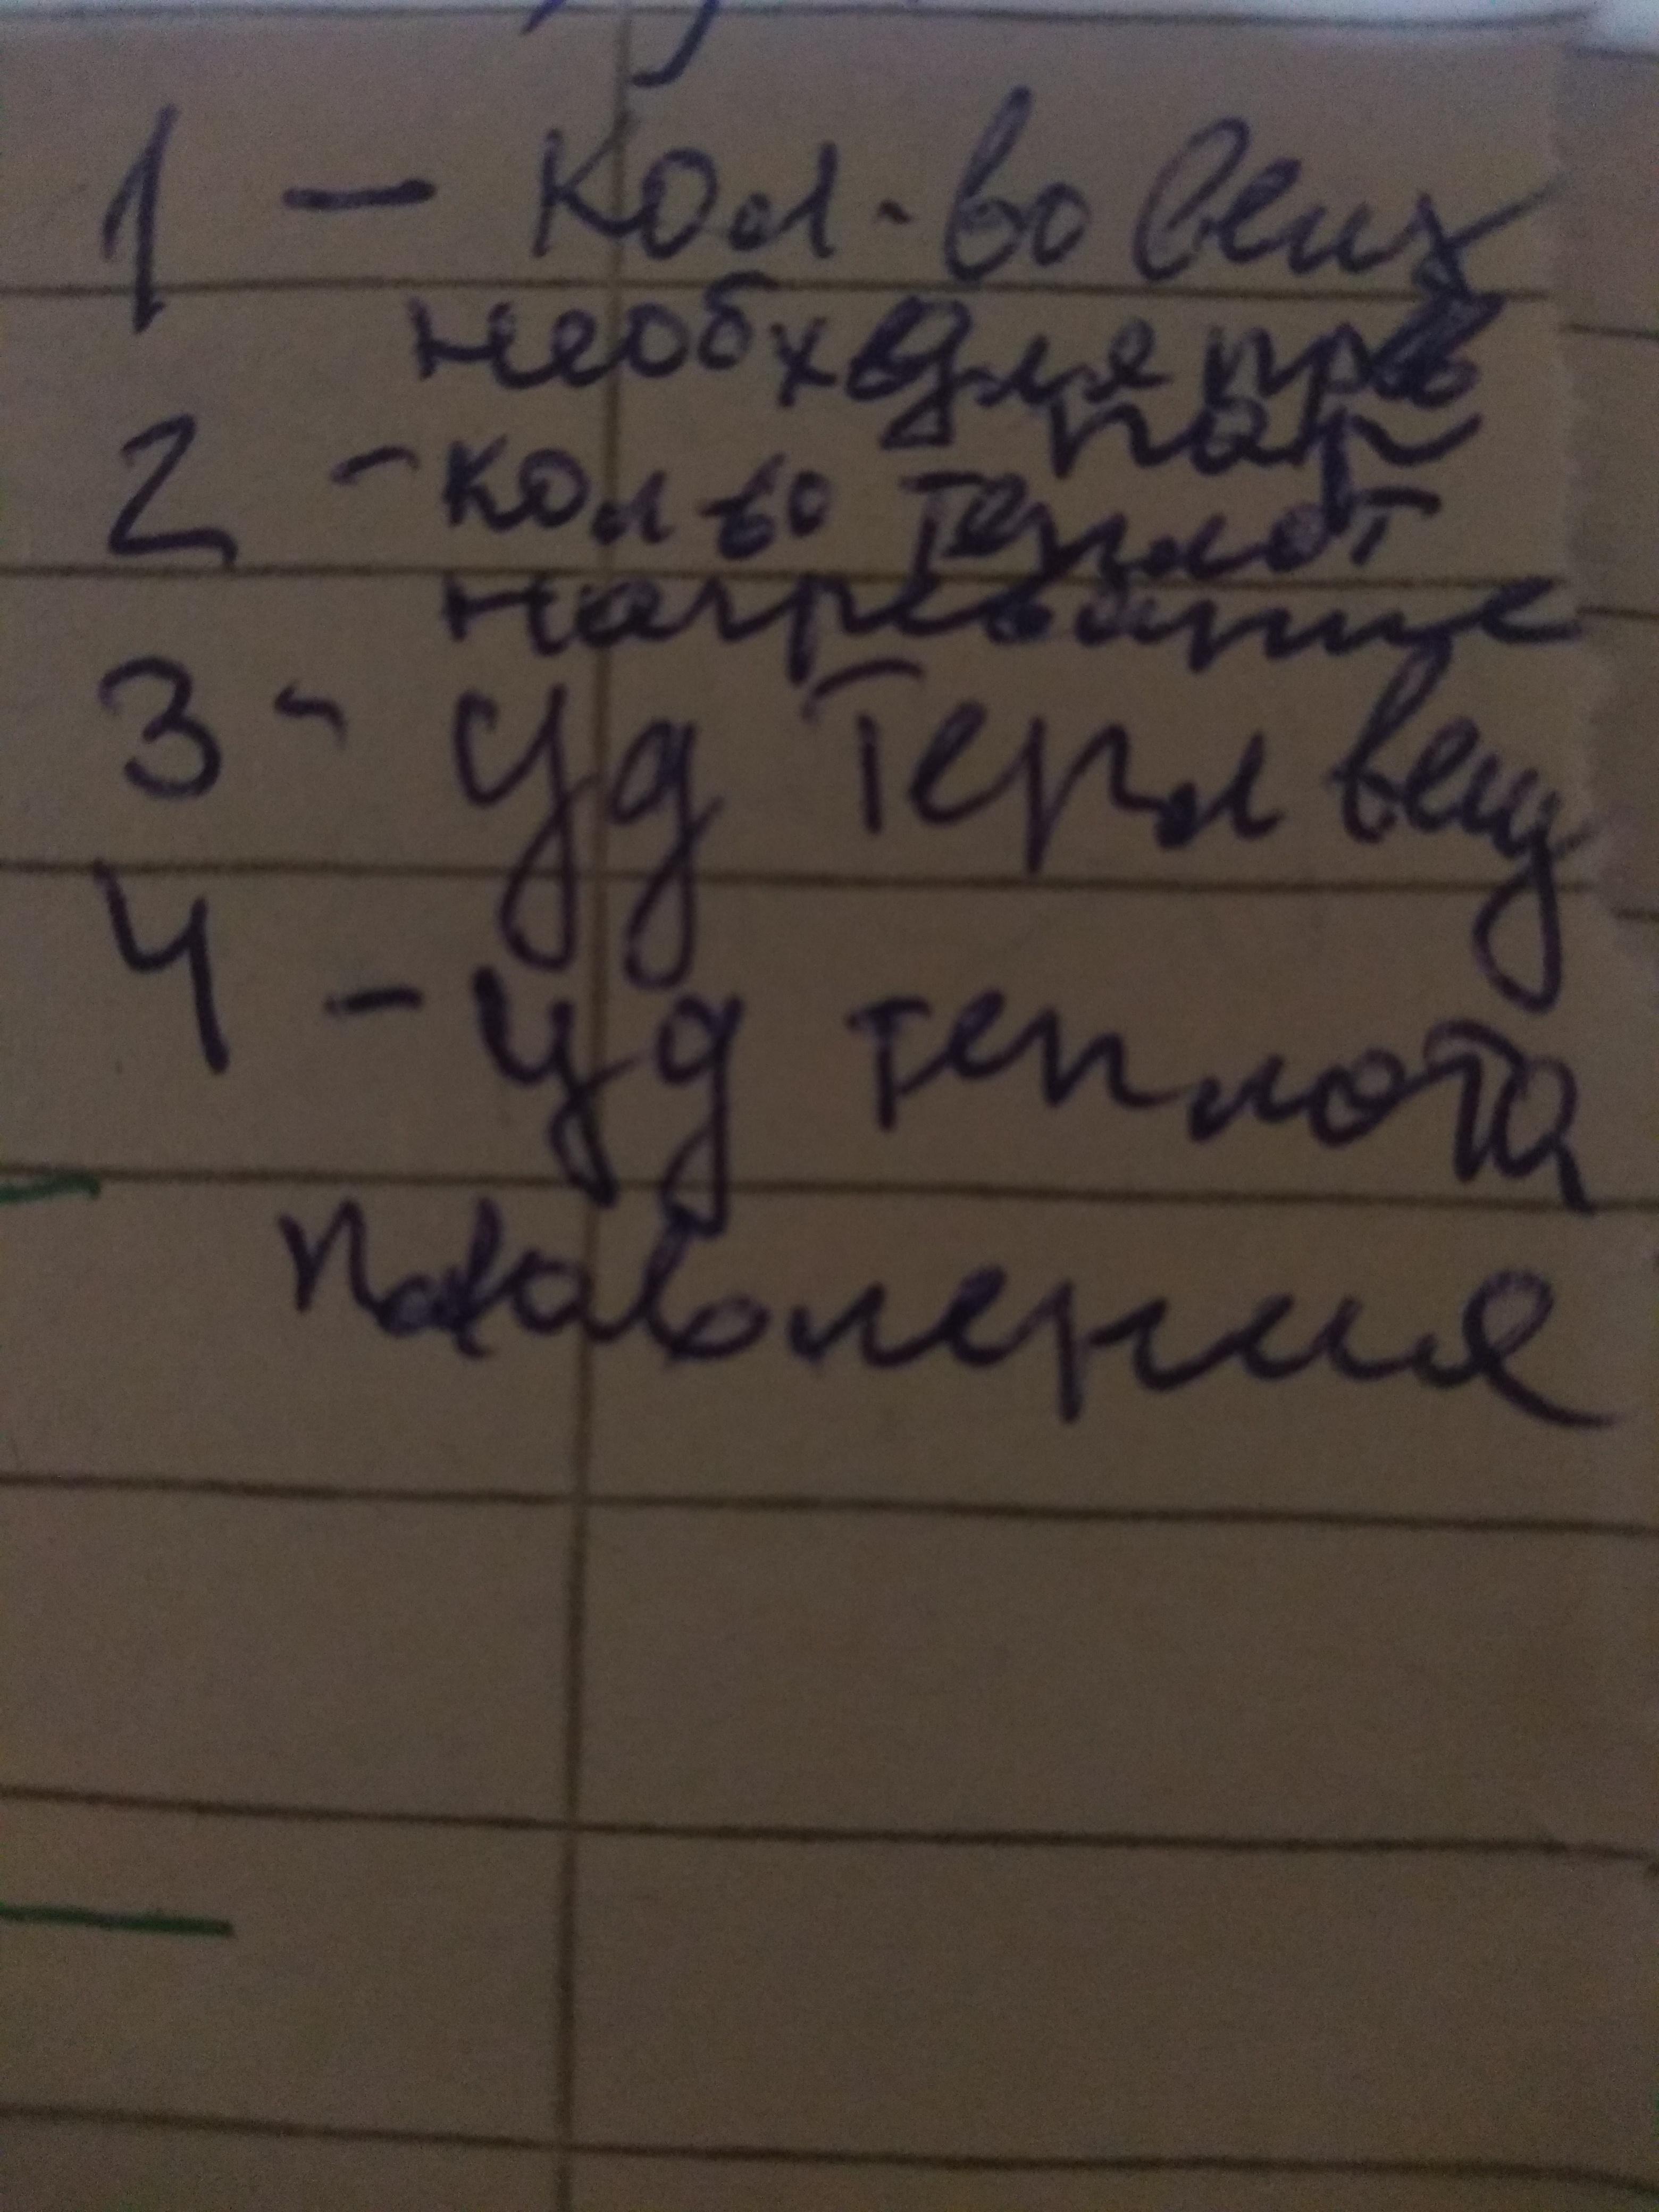 1 - кол-во вещ
необх для пр
пар
2 - кол-во теплот
нагревание
3 - уд тепл вещ
4 - уд теплота
плавления